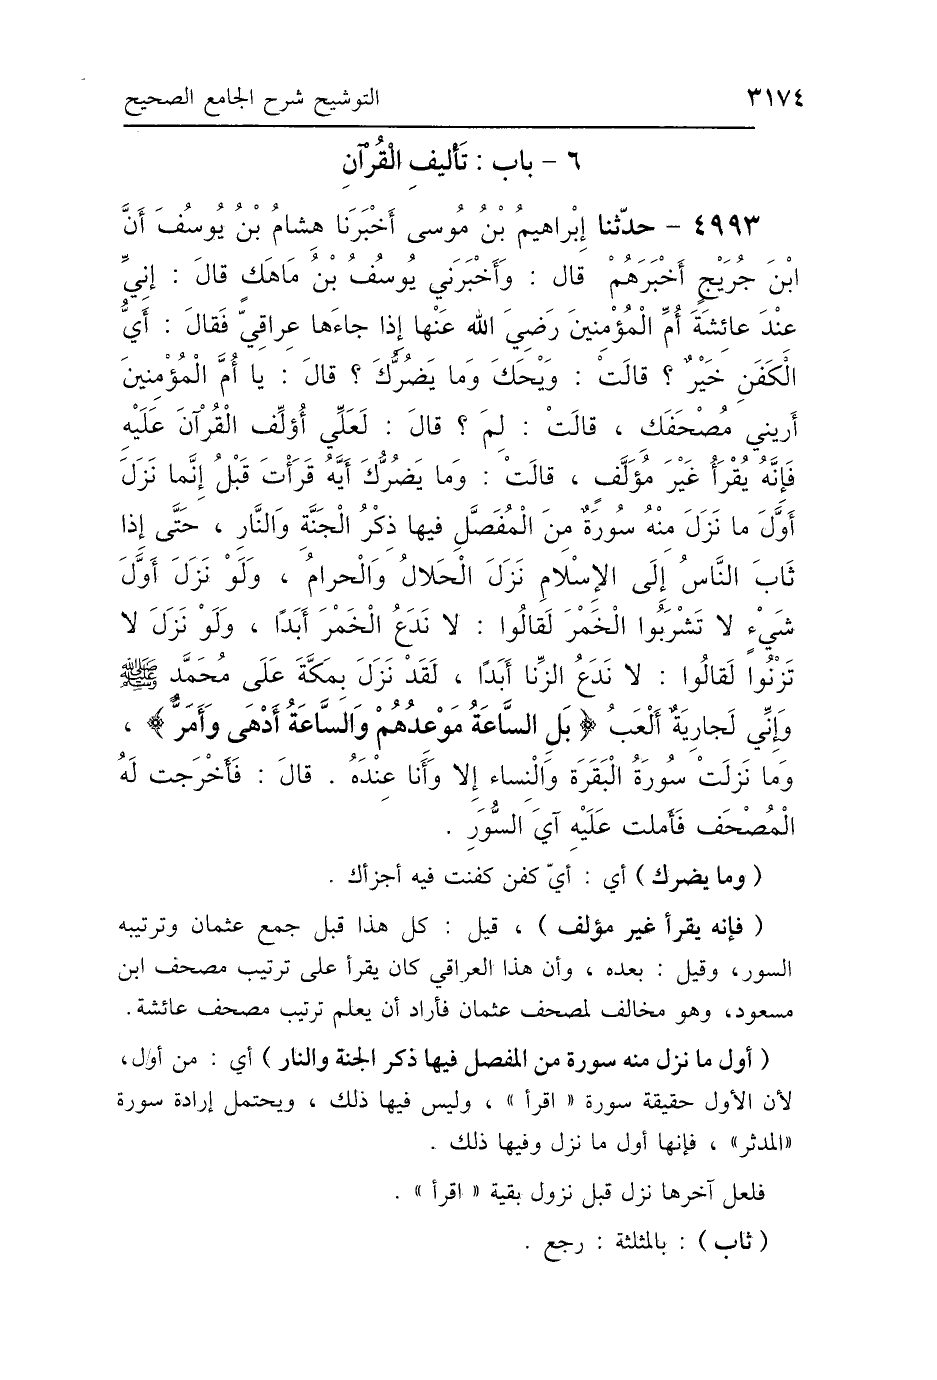 ٣١٧٤ التوشيح شرح الجامع الصحيح
٦ - باب : تَأْليفِ الْقُرْآنِ
٤٩٩٣ - حدّثنا إِبْراهيمُ بْنُ مُوسى أَخْبَرَنَا هشامُ بْنُ يُوسُفَ أَنَّ
ابْنَ جُرَيْجٍ أَخْبَرَهُمْ قال : وَأَخْبَرَني يُوسُفُ بْنُ مَاهَك قالَ : إِنيِّ
عِنْدَ عائشَةَ أُمِّ الْمُؤْمنِينَ رَضِيَ الله عَنْها إِذا جاءَها عراقيّ فَقالَ : أَيُّ
الْكَفَنِ خَيْرٌ ؟ قالَتْ : وَيْحَكَ وَما يَضُرُّكَ ؟ قالَ : يا أُمَّ الْمُؤْمِنين
أَرِيني مُصْحَفَك ، قالَتْ : لِمَ ؟ قالَ : لَعَلِّي أُؤَلِّف الْقُرْآنَ عَلَيْهِ
فَإِنَّهُ يُقْرَأُ غَيْرَ مُؤَلَّفٍ ، قالَتْ : وَما يَضُرُّكَ أَيَّهُ قَرَأْتَ قَبْلُ إِنَّما نَزَلَ
أَوَّلَ ما نَزَلَ مِنْهُ سُورَةٌ مِنَ الْمُفَصَّلِ فِيها ذكْرُ الْجَنَّةِ وَالنَّارِ ، حَتَّى إِذا
ثابَ النَّاسُ إِلَى الإِسْلامِ نَزَلَ الْحَلالُ وَالْحرامُ ، وَلَوْ نَزَلَ أَوَّلَ
شَيْءٍ لا تَشْرَبُوا الْخَمْرَ لَقالُوا : لا نَدَعُ الْخَمْرَ أَبَدًا ، وَلَوْ نَزَلَ لا
تَزْنُوا لَقالُوا : لا نَدَعُ الزِّنا أَبَدًا ، لَقَدْ نَزَلَ بِمَكَّةَ عَلَى مُحَمَّدٍ ﷺ
وَإِنِّي لَجارِيَةٌ أَلْعَبُ ﴿ بَلِ السَّاعَةُ مَوْعدُهُمْ وَالسَّاعَةُ أَدْهَى وَأَمَرُّ ﴾ ،
وَما نَزَلَتْ سُورَةُ الْبَقَرَةِ وَالْنساء إِلا وَأَنا عِنْدَهُ . قالَ : فَأَخْرَجت لَهُ
الْمُصْحَفَ فَأَملت عَلَيْهِ آيَ السُّوَرِ .
( وما يضرك ) أي : أيّ كفن كفنت فيه أجزأك .
( فإنه يقرأ غير مؤلف ) ، قيل : كل هذا قبل جمع عثمان وترتيبه
السور، وقيل : بعده ، وأن هذا العراقي كان يقرأ على ترتيب مصحف ابن
مسعود، وهو مخالف لمصحف عثمان فأراد أن يعلم ترتيب مصحف عائشة.
( أول ما نزل منه سورة من المفصل فيها ذكر الجنة والنار ) أي : من أول،
لأن الأول حقيقة سورة « اقرأ » ، وليس فيها ذلك ، ويحتمل إرادة سورة
«المدثر» ، فإنها أول ما نزل وفيها ذلك .
فلعل آخرها نزل قبل نزول بقية « اقرأ » .
( ثاب ) : بالمثلثة : رجع .